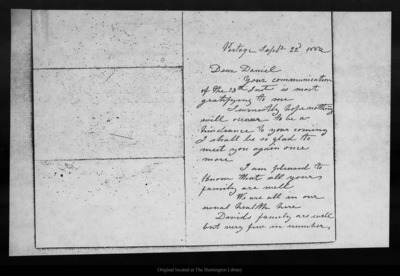 Portage Sept 22d 1882
Dear Daniel
Your communication
of the 13th Inst is most
gratifying to me
I earnestly hope nothing
will occur to be a
hindrance to your coming
I shall be so glad to
meet you again once
more
I am pleased to
know that all your
family are well
We are all in our
usual health here
Davids family are well
but very few in number,
Original located at The Huntington Library